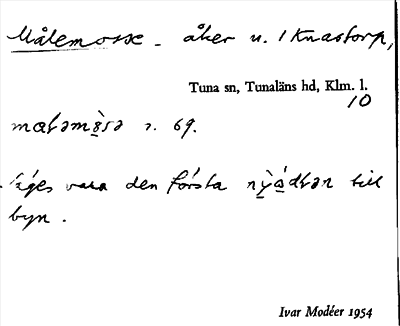 Målemosse - åker u. 1 Knastorp,
Tuna sn, Tunaläns hd, Klm. l.
10
mɑləmò̱sə 69.
säges vara den första till
byn.
Ivar Modéer 1954